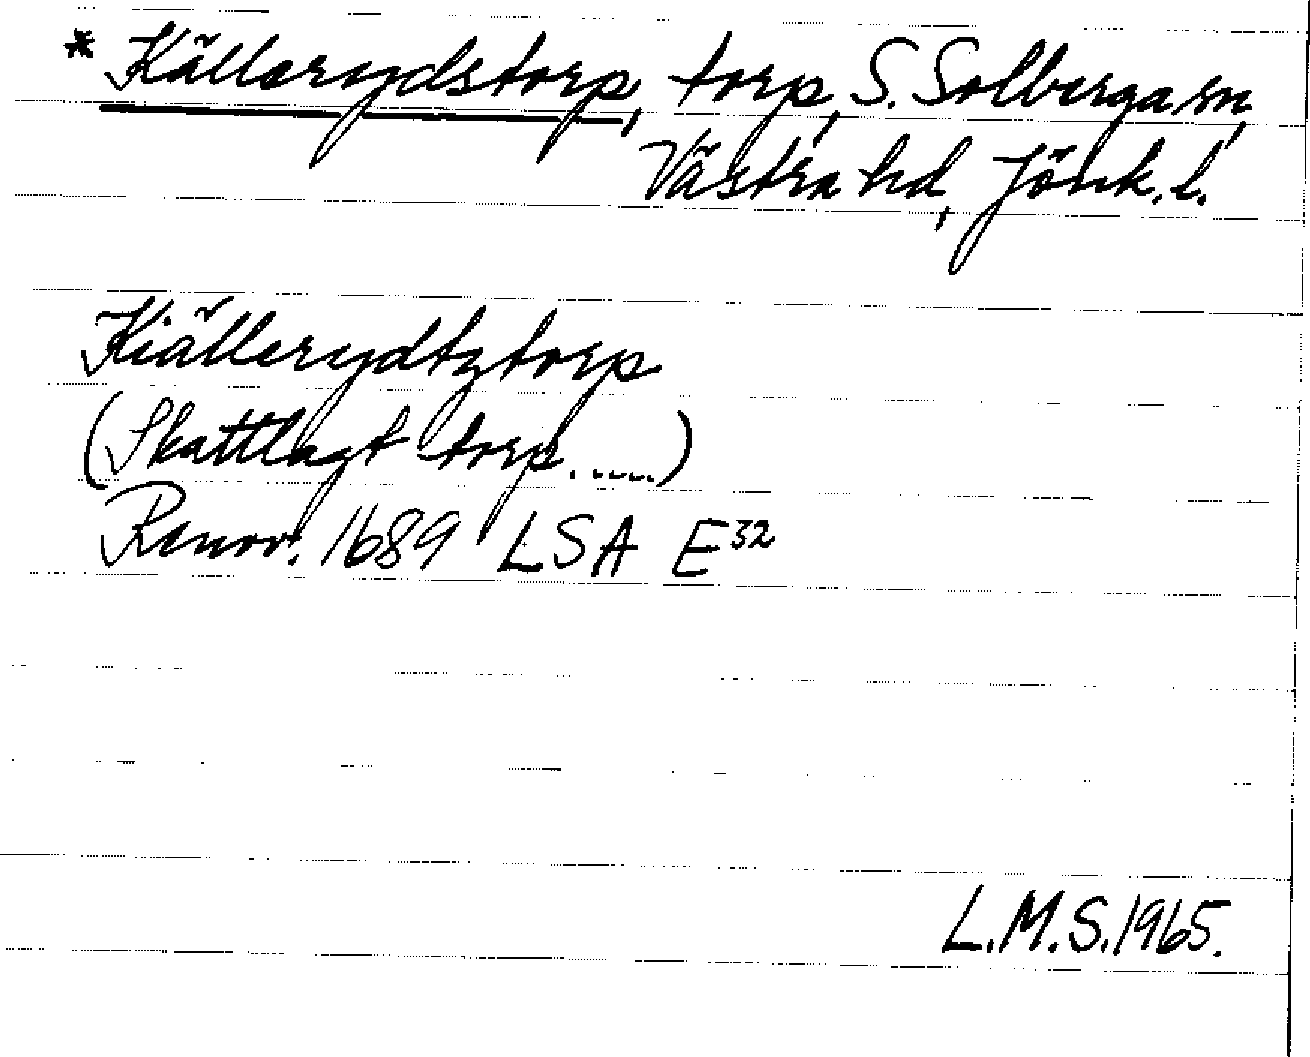 * Källerydstorp, torp, S. Solberga sn,
Västra hd, Jönk. l.
Kiällerydtztorp
(Skattlagt torp......)
Renov. 1689 LSA E32
L.M.S. 1965.